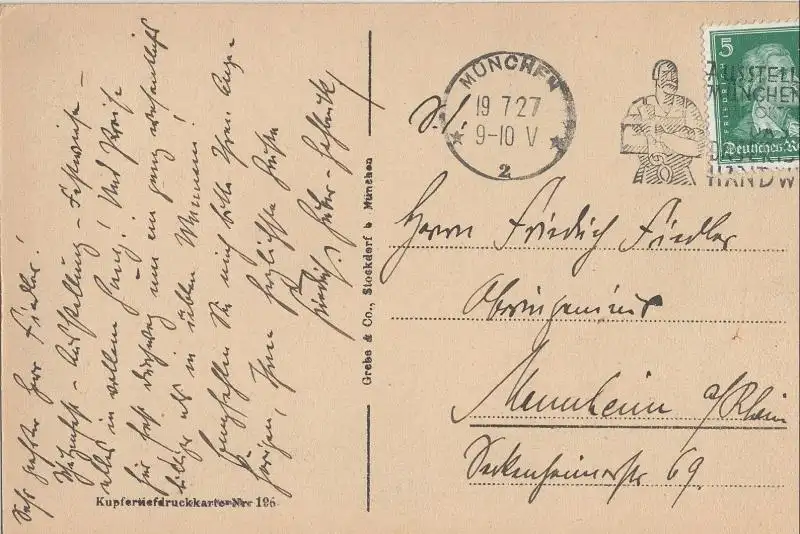 Sehr geehrter Herr Fiedler!
Ausstellung – Festwiese –
alles in vollem Gang! Und Preise
hier fast durchweg um ein ganz wesentlich
billiger als im lieben Mannem!
Empfehlen Sie mich bitte Ihren Ange-
hörigen, Ihnen herzlichste Grüße
Grebe & Co., Stockdorf b München
Kupfertiefdruckkarte Nr 126
MÜNCHEN
19 7 27
9-10 V
2
AUSSTELL
MÜNCHEN
HANDW
5
Deutsches R
Herrn Friedrich Fiedler
Oberingenieur
Mannheim a/Rhein
Seckenheimerstr 69.